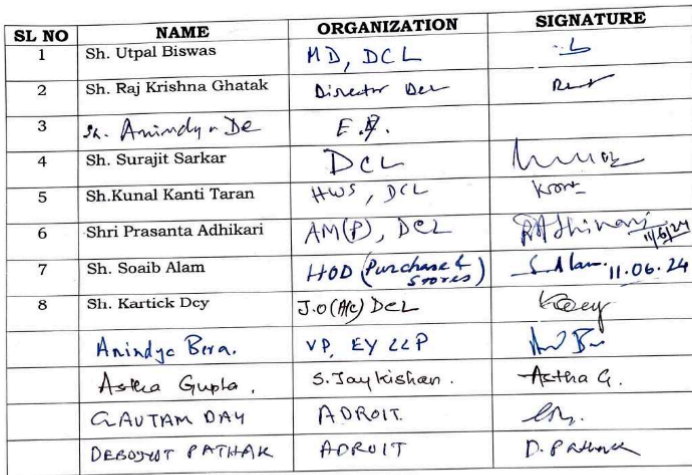 SL NO NAME ORGANIZATION SIGNATURE
1 Sh. Utpal Biswas MD, DCL
2 Sh. Raj Krishna Ghatak Director DCL
3 Sh. Anindya De
4 Sh. Surajit Sarkar DCL
5 Sh.Kunal Kanti Taran HWS, DCL
6 Shri Prasanta Adhikari AM(P), DCL 11/6/24
7 Sh. Soaib Alam HOD (Purchase & Stores) S. Alam. 11.06.24
8 Sh. Kartick Dey J.O (A/c) DCL
Anindya Bera. VP, EY LLP
Astha Gupta. S. Jaykishan. Astha G.
GAUTAM DAY ADROIT.
DEBOJYOT PATHAK ADROIT D. Pathak